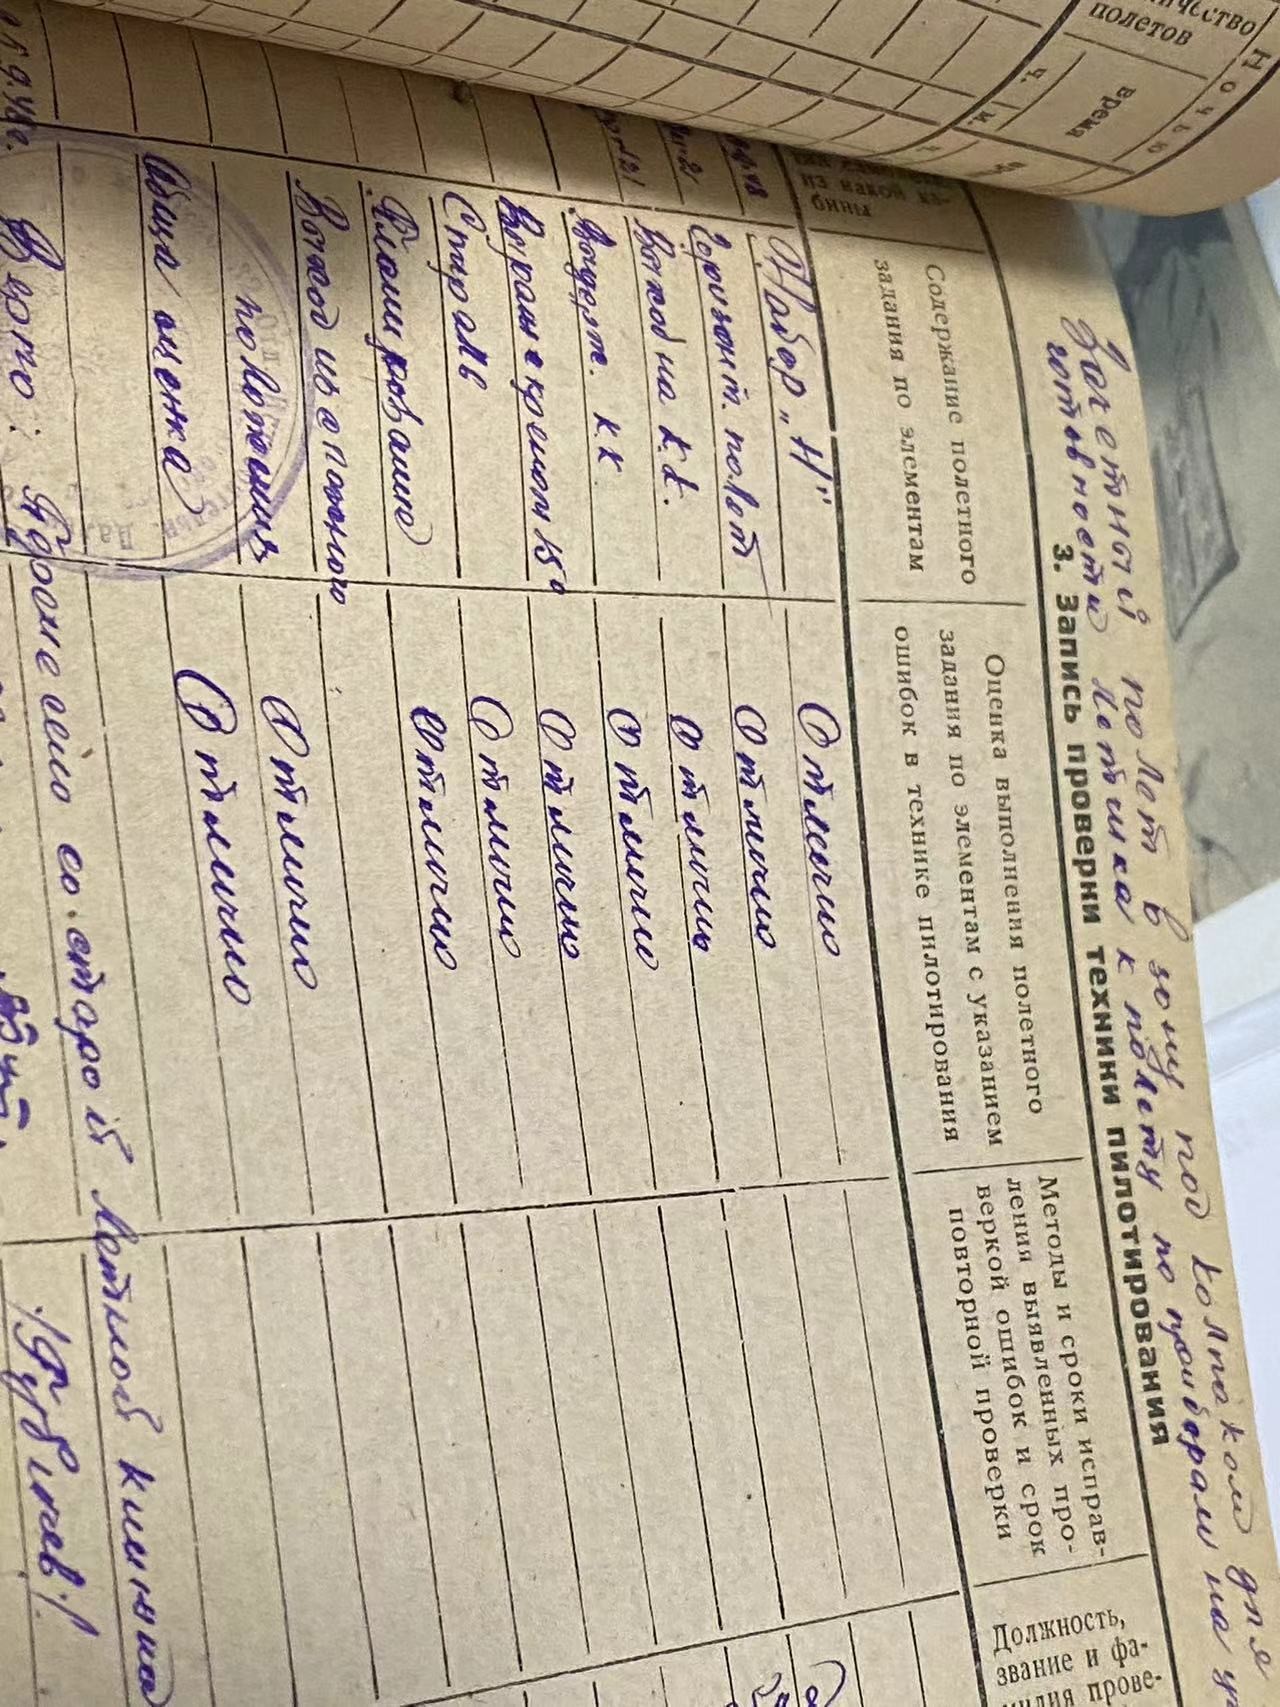 Количество
полетов
Ночью
время
ч.
м.
Зачетный полет в зону под колпаком для
готовности летчика к полету по приборам на
3. Запись проверки техники пилотирования
из какой ка-
бины
Содержание полетного
задания по элементам
Оценка выполнения полетного
задания по элементам с указанием
ошибок в технике пилотирования
Методы и сроки исправ-
ления выявленных про-
веркой ошибок и срок
повторной проверки
Должность,
звание и фа-
милия прове-
Набор „Н" Отлично
Горизонт. полет Отлично
Выход на К.К. Отлично
Выдерж. КК Отлично
Виражи с креном 15° Отлично
Спираль Отлично
Планирование Отлично
Вывод из сложного
положения Отлично
Общая оценка Отлично
Верно: Перенесено со старой летной книжки